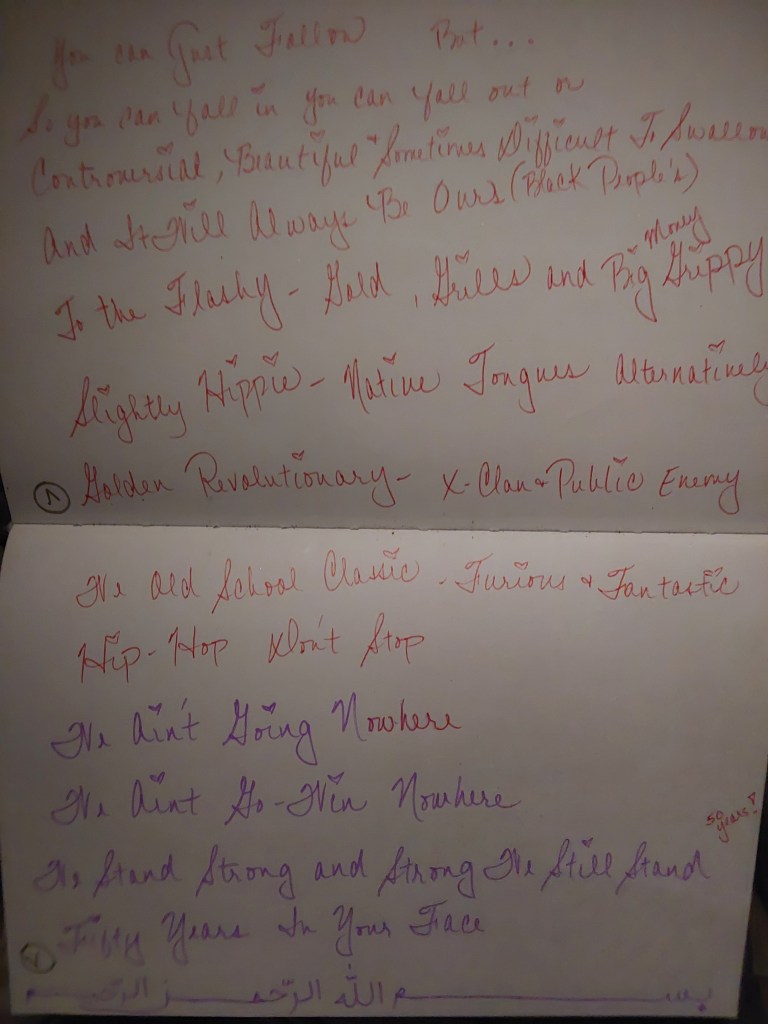 You can Just Follow But...
So you can fall in you can fall out or
Controversial, Beautiful & Sometimes Difficult To Swallow
And It Will Always Be Ours (Black People's)
To the Flashy - Gold, Grills and Big Money Grippy
Slightly Hippie - Native Tongues Alternatively
Golden Revolutionary - X-Clan & Public Enemy
We Old School Classic - Furious & Fantastic
Hip-Hop Don't Stop
We Ain't Going Nowhere
We Aint Go-Win Nowhere
50 years!
We Stand Strong and Strong We Still Stand
Fifty Years In Your Face
بسم الله الرحمن الرحيم